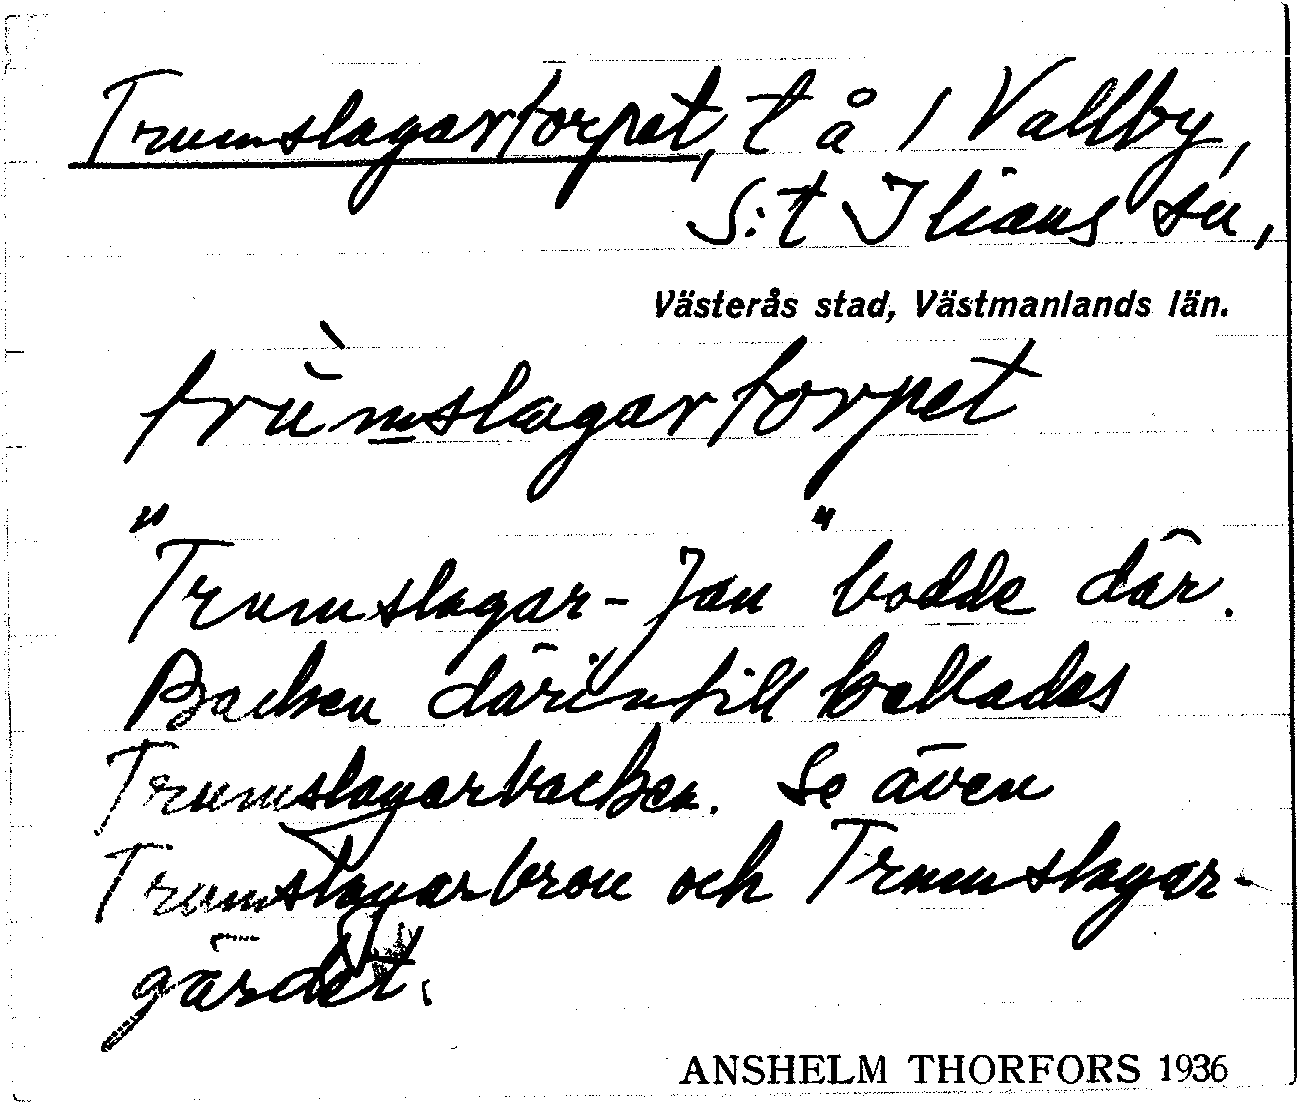 Trumslagartorpet, t å 1 Vallby,
S:t Ilians sn,
Västerås stad, Västmanlands län.
trùmslagartorpet
"Trumslagar-Jan" bodde där.
Backen därintill kallades
Trumslagarbacken. Se även
Trumslagarbron och Trumslagar-
gärdet.
ANSHELM THORFORS 1936